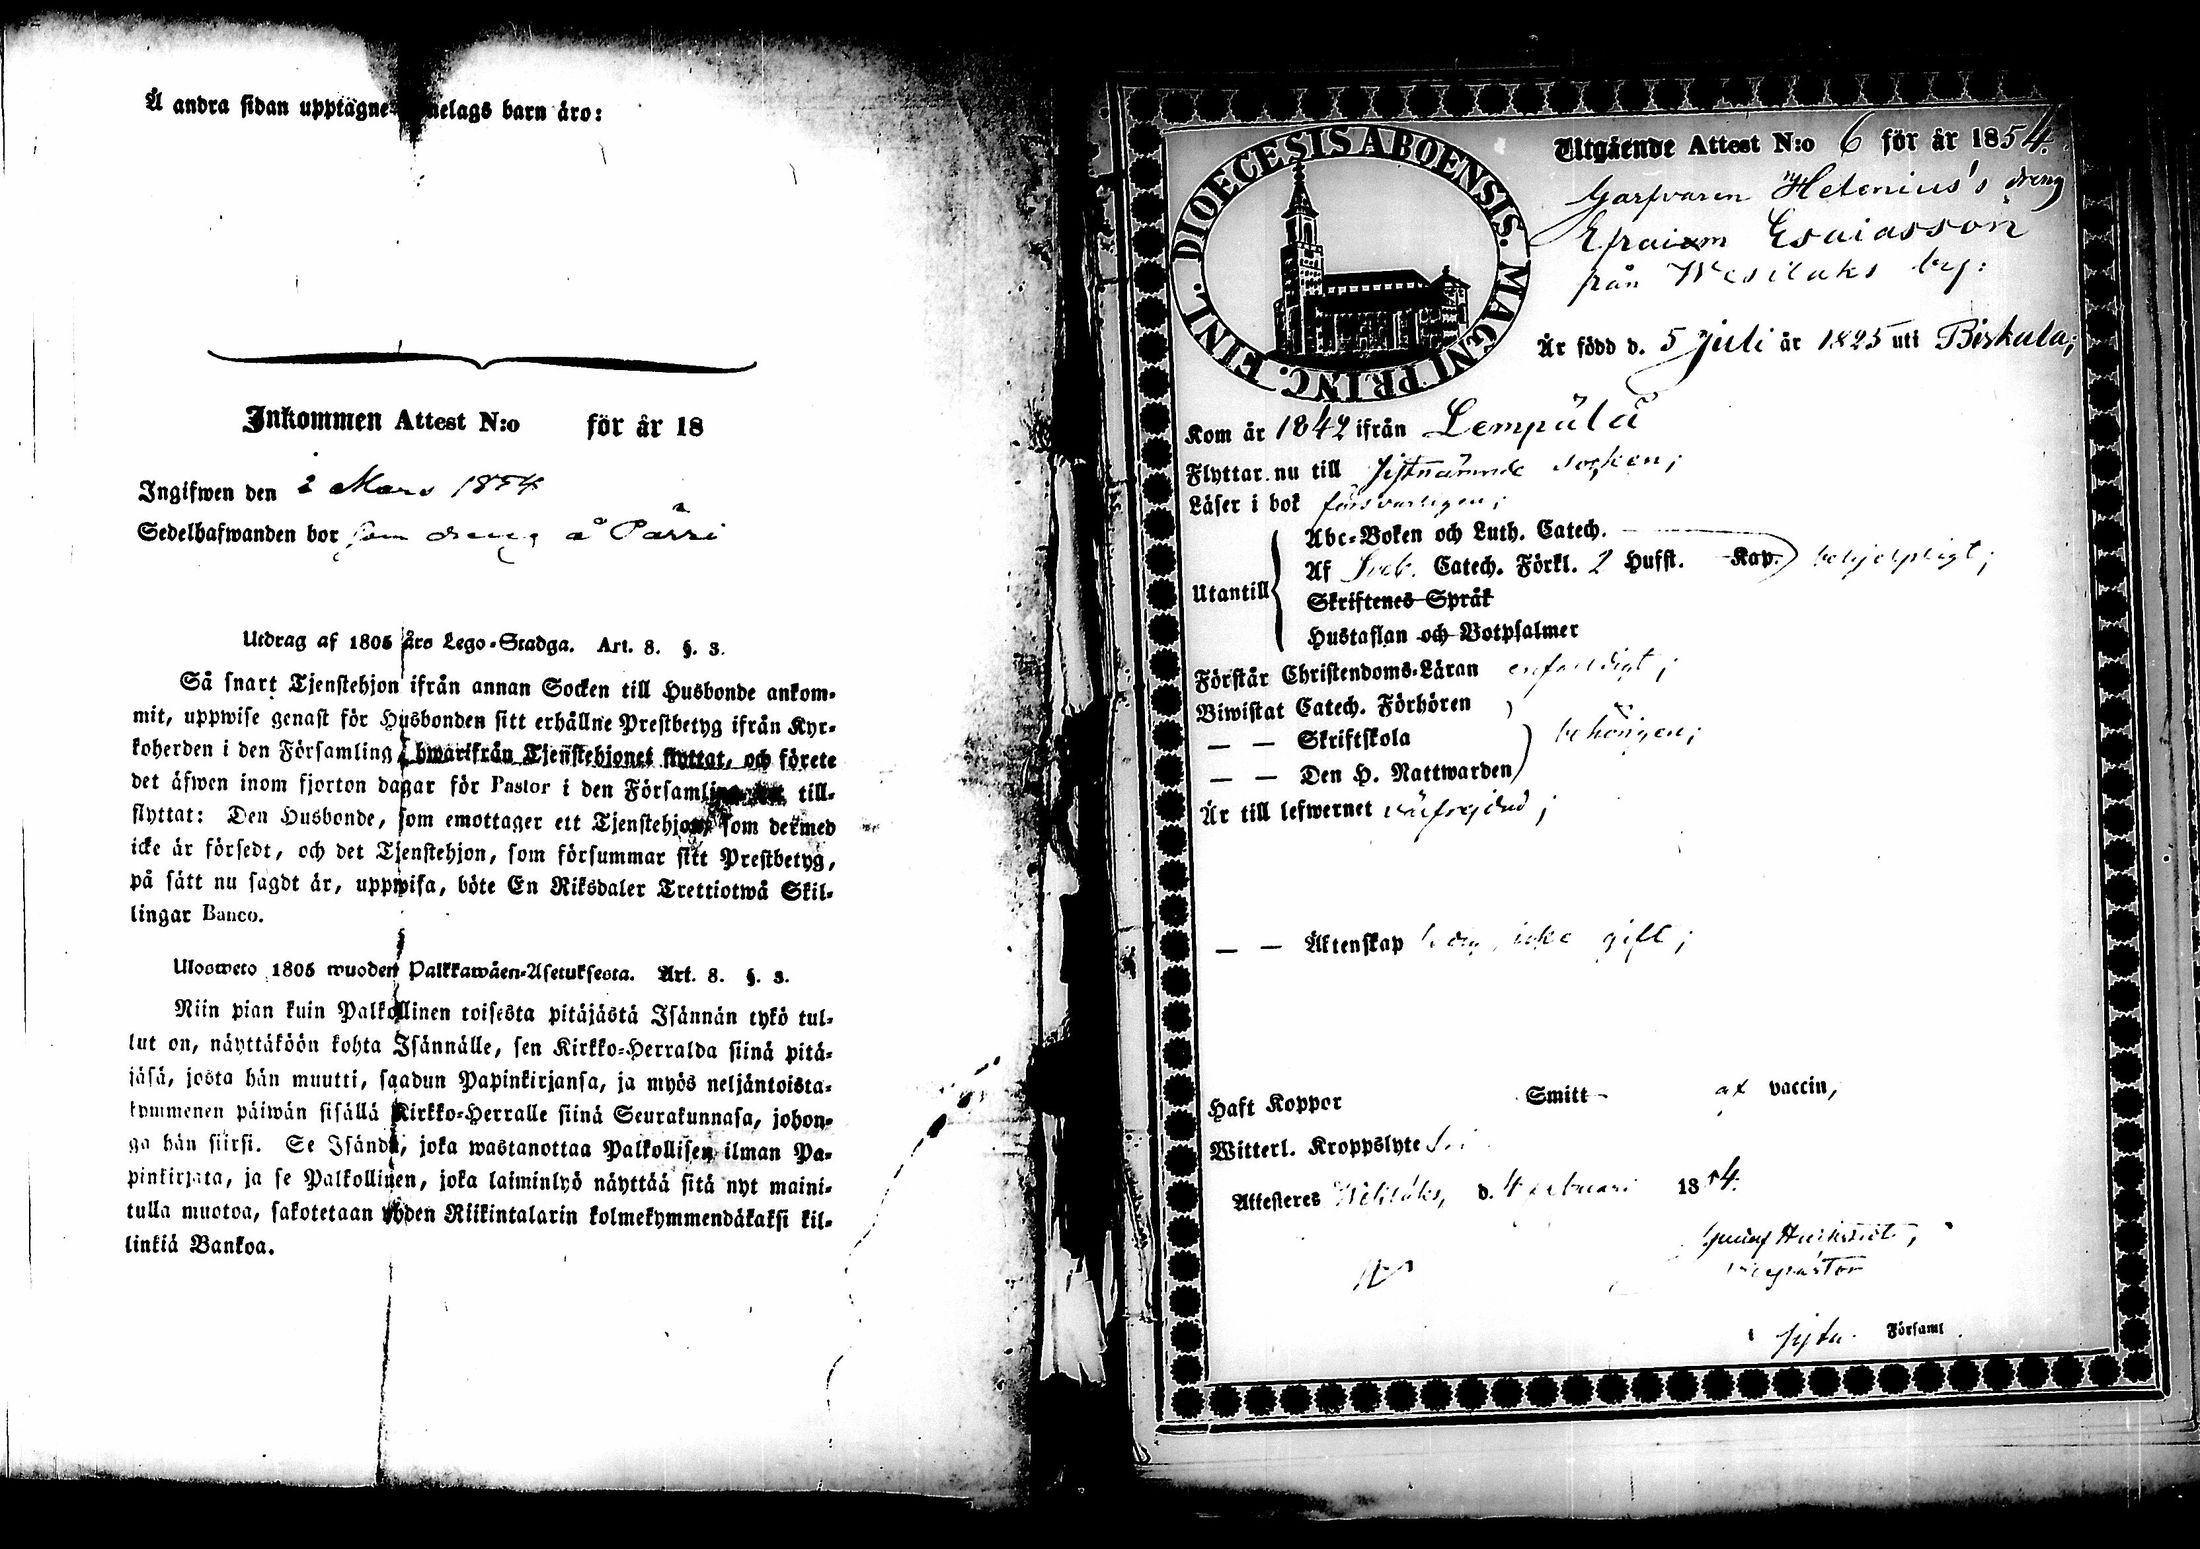 Å andra sidan upptagne elags barn äro:
Inkommen Attest N:o för år 18
Ingifwen den 2 Mars 1854
Sedelhafwanden bor som dreng å Pärri
Utdrag af 1805 års Lego-Stadga. Art. 8. §. 3.
Så snart Tjenstehjon ifrån annan Socken till Husbonde ankom-
mit, uppwise genast för Husbonden sitt erhållne Prestbetyg ifrån Kyr-
koherden i den Församling, hwarifrån Tjenstehjonet flyttat, och förete
det äfwen inom fjorton dagar för Pastor i den Församling till-
flyttat: Den Husbonde, som emottager ett Tjenstehjon, som dermed
icke är försedt, och det Tjenstehjon, som försummar sitt Prestbetyg,
på sätt nu sagdt är, uppwisa, böte En Riksdaler Trettiotwå Skil-
lingar Banco.
Ulosweto 1805 wuoden Palkkawäen-Asetuksesta. Art. 8. §. 3.
Niin pian kuin Palkollinen toisesta pitäjästä Isännän tykö tul-
lut on, näyttäköön kohta Isännälle, sen Kirkko-Herralda siinä pitä-
jäsä, josta hän muutti, saadun Papinkirjansa, ja myös neljäntoista-
kymmenen päiwän sisällä Kirkko-Herralle siinä Seurakunnasa, johon-
ga hän siirsi. Se Isändä, joka wastanottaa Palkollisen ilman Pa-
pinkirjata, ja se Palkollinen, joka laiminlyö näyttää sitä nyt maini-
tulla muotoa, sakotetaan yhden Riikintalarin kolmekymmendäkaksi kil-
linkiä Bankoa.
DIOECESIS ABOENSIS. MAGNI PRINC. FINL.
Utgående Attest N:o 6 för år 1854.
Garfvaren Helenius's dreng
Efraim Esaiasson
från Wesilaks by:
Är född d. 5 Juli år 1825 uti Birkala;
Kom år 1842 ifrån Lempäälä
Flyttar nu till sistnämnde socken;
Läser i bok försvarligen;
Abc-Boken och Luth. Catech.
Af Sveb. Catech. Förkl. 2 Hufst. Kap. behjelpligt;
Utantill
Skriftenes Språk
Hustaflan och Botpsalmer
Förstår Christendoms-Läran enfaldigt;
Biwistat Catech. Förhören
— — Skriftskola behörigen;
— — Den H. Nattwarden
Är till lefwernet wälfrejdad;
— — Äktenskap ledig, icke gift;
Haft Koppor Smitt af vaccin,
Witterl. Kroppslyte
Attesteres Wesilaks, d. 4 Februari 1854.
Gustaf
vicepastor
i Församl